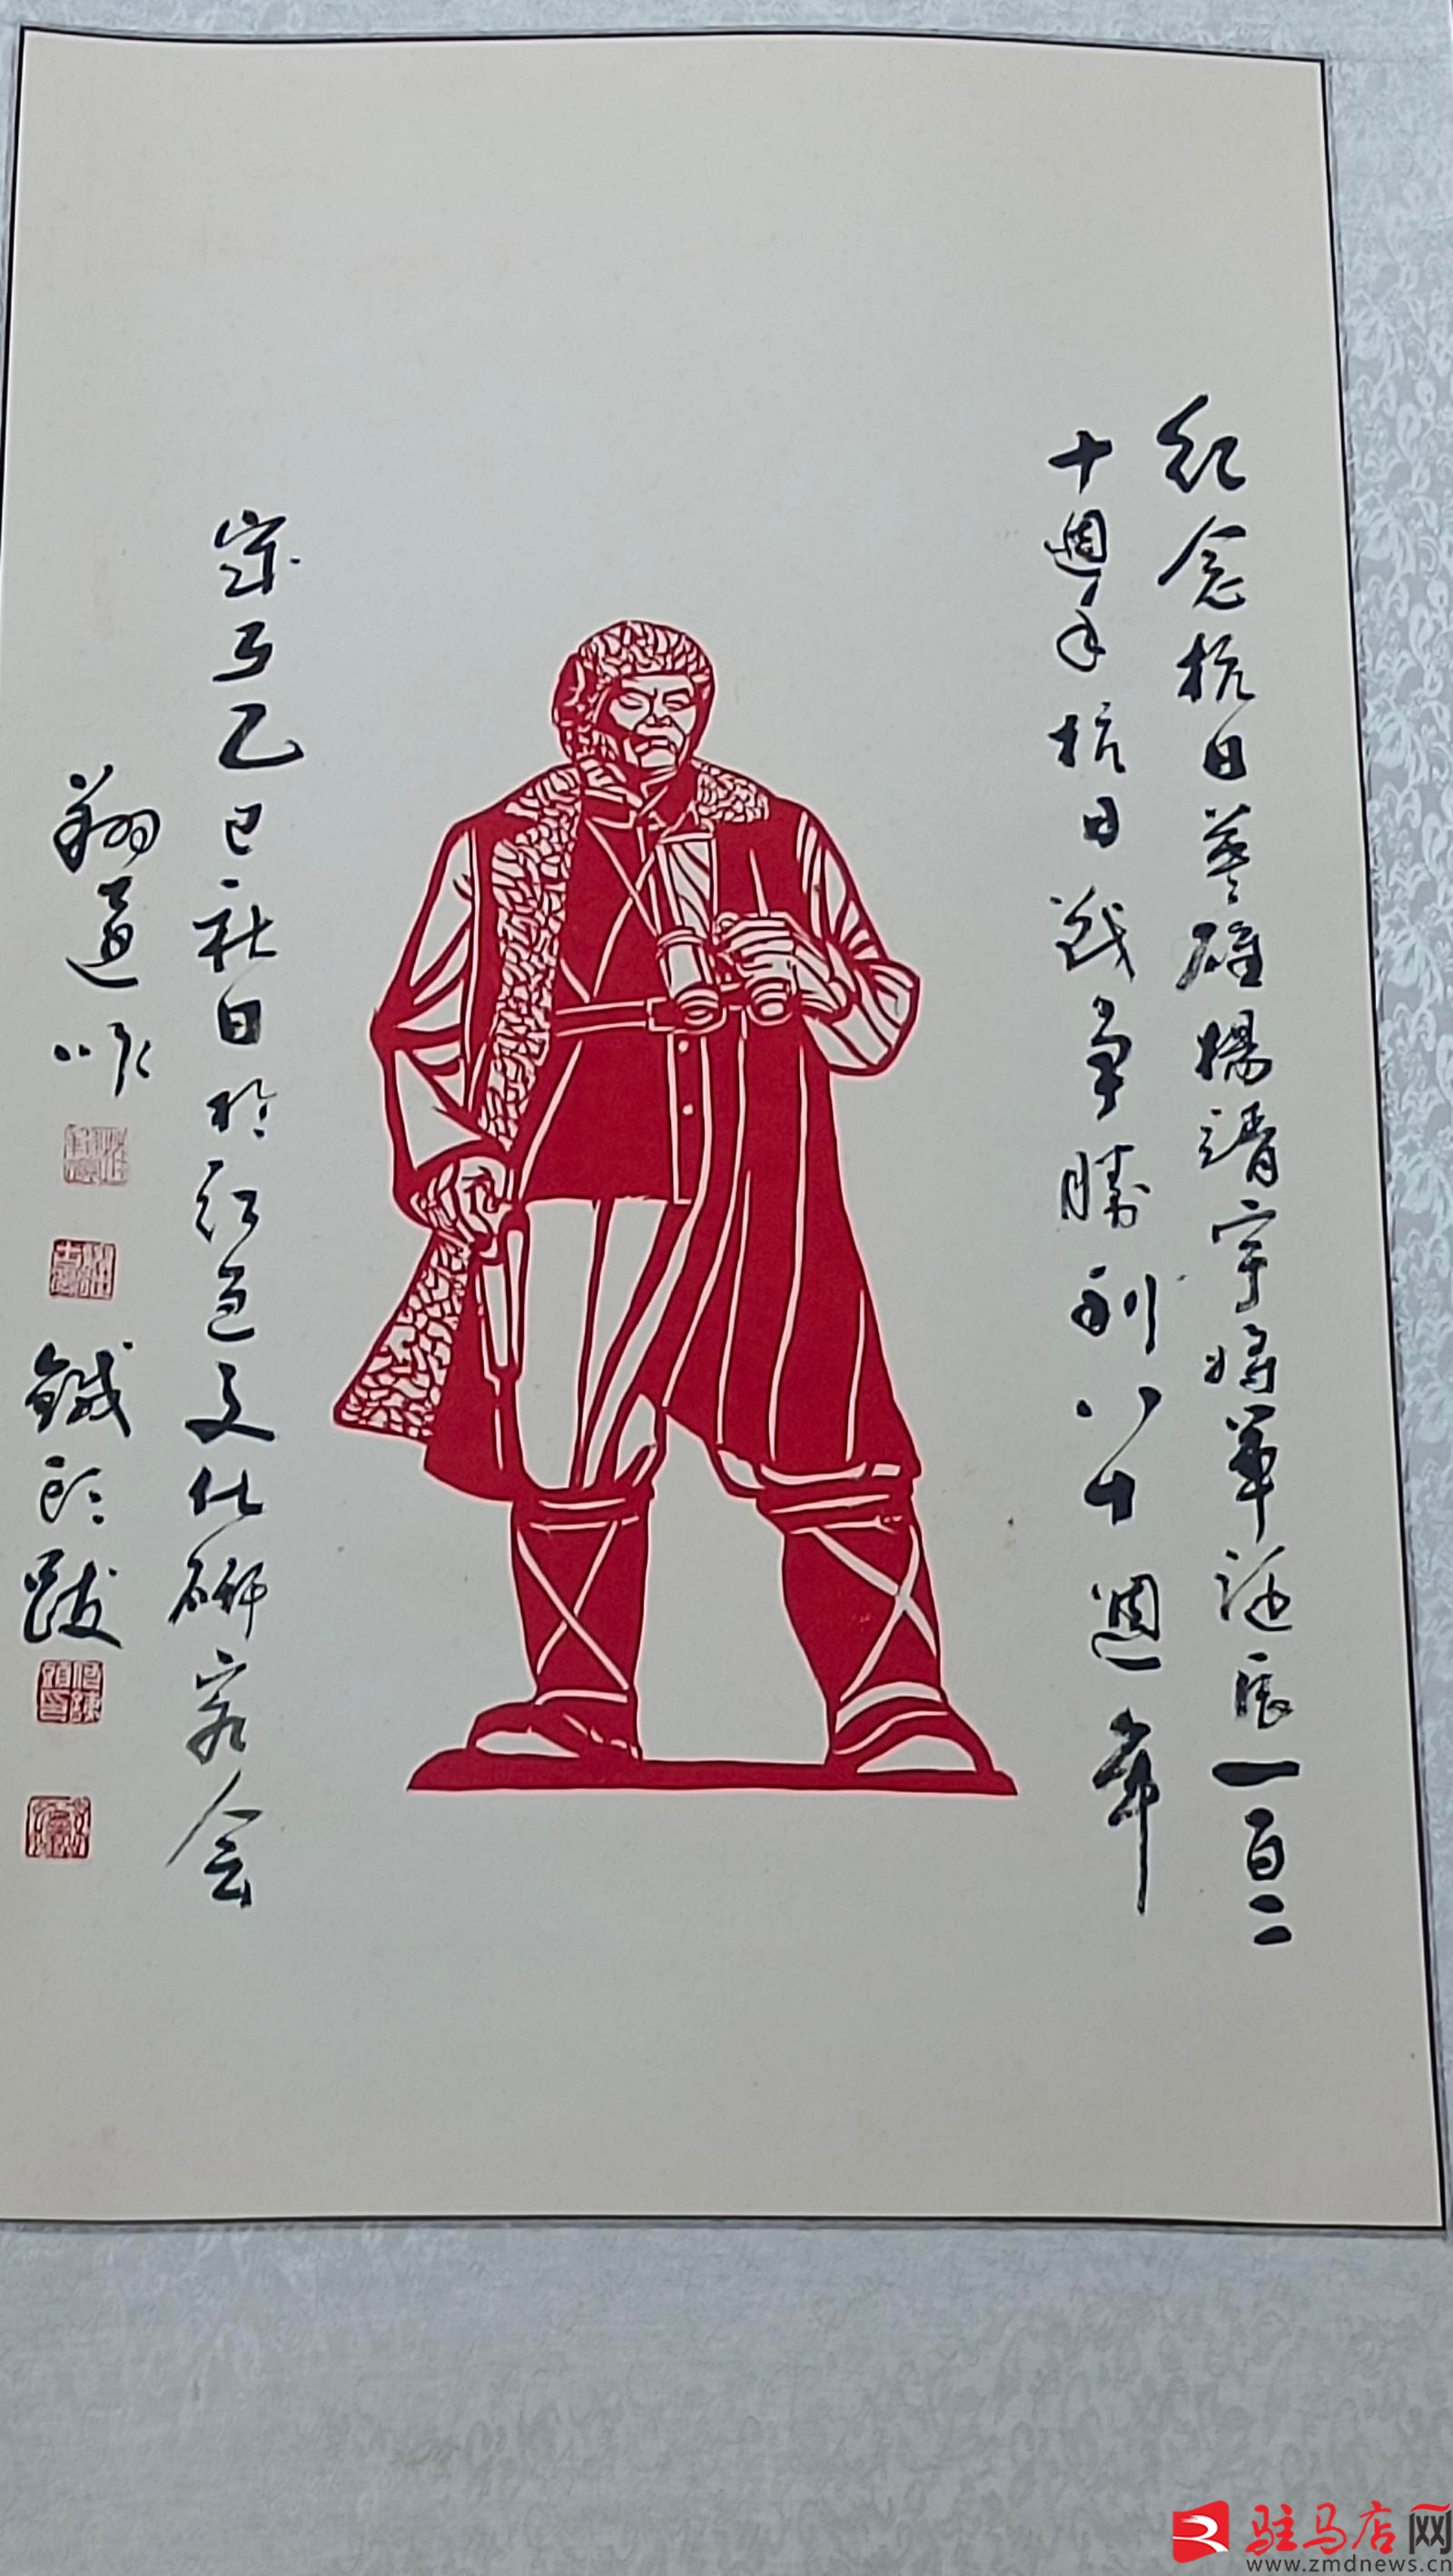 纪念抗日英雄楊靖宇将軍诞辰一百二
十週年抗日战争勝利八十週年
歲在乙巳秋日於红色文化研究会
翔道作
鐵頭跋
驻马店网
www.zmdnews.cn